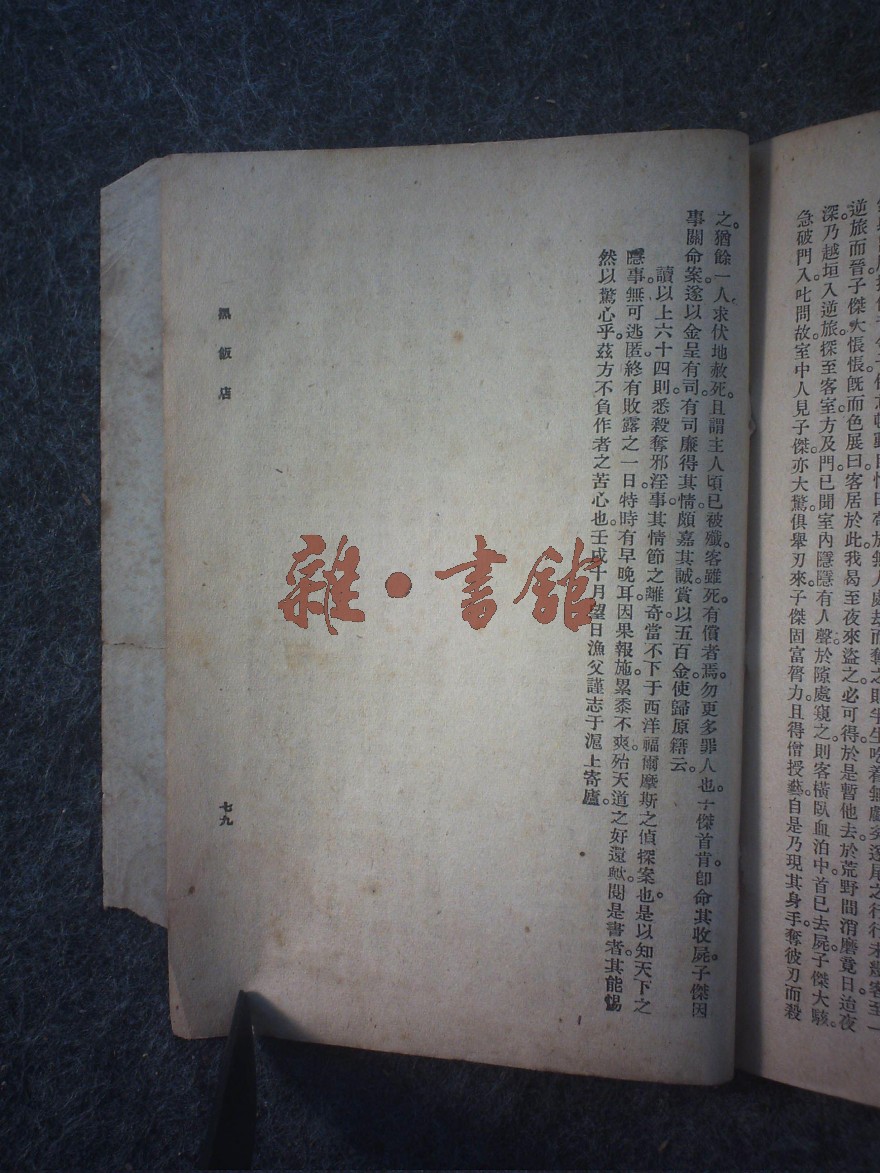 逆旅而晉子傑大悵悵旣而色展曰客居於此我曷至夜來盜之必可得於是暫他去於荒野間消磨竟日迨夜
深乃越垣入逆旅探至客室方及門已聞室內隱隱有人聲於隙處窺之則客橫臥血泊中首已去屍子傑大駭。
急破門入叱問故室中人見子傑亦大驚俱舉刃來子傑固富膂力且得僧授藝自是乃現其身手奪彼刃而殺
之。猶餘一人求伏地赦死。且謂主人頃已被殲客雖死有償者焉勿更多罪人也。子傑首肯卽命其收屍。子傑因
事關命案遂以金呈有司。有司廉得其情頗嘉其誠賞以五百金使歸原籍云。
讀以上六十四則悉殺奪邪淫事其情節之離奇當不下于西洋福爾摩斯之偵探案也是以知天下之
隱事無可逃匿終有敗露之一日特時有早晚耳因果報施累黍不爽殆天道之好還歟閱是書者其能惕
然以驚心乎茲方不負作者之苦心也壬戌十月望日漁父謹志于滬上寄廬。
黑飯店
七九
雜·書館